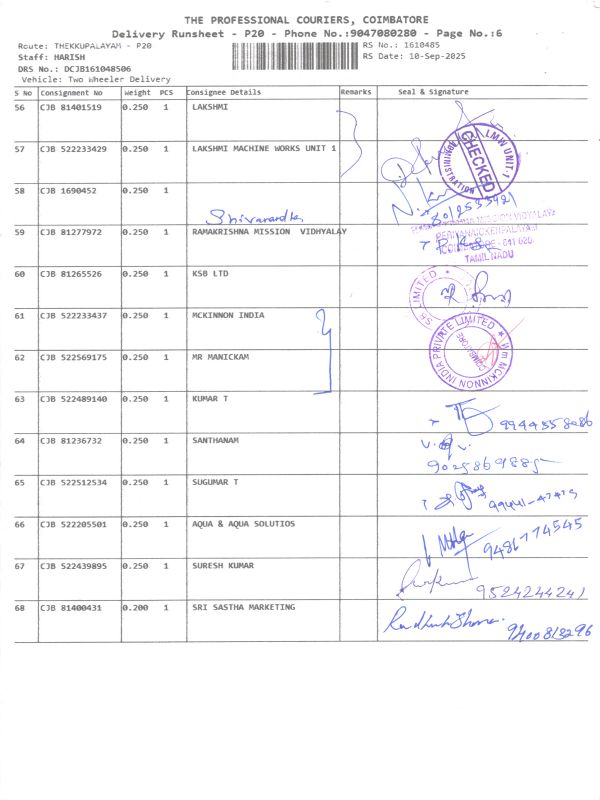 THE PROFESSIONAL COURIERS, COIMBATORE
Delivery Runsheet - P20 - Phone No.:9047080280 - Page No.:6
Route: THEKKUPALAYAM - P20 RS No.: 1610485
Staff: HARISH RS Date: 10-Sep-2025
DRS No.: DCJB161048506
Vehicle: Two Wheeler Delivery
S No Consignment No Weight PCS Consignee Details Remarks Seal & Signature
56 CJB 81401519 0.250 1 LAKSHMI
57 CJB 522233429 0.250 1 LAKSHMI MACHINE WORKS UNIT 1
CHECKED
LMW UNIT-1
58 CJB 1690452 0.250 1
59 CJB 81277972 0.250 1 RAMAKRISHNA MISSION VIDHYALAY
MISSION VIDYALAYA
TAMIL NADU
60 CJB 81265526 0.250 1 KSB LTD
LIMITED
61 CJB 522233437 0.250 1 MCKINNON INDIA
MCKINNON INDIA PRIVATE LIMITED
COIMBATORE
62 CJB 522569175 0.250 1 MR MANICKAM
63 CJB 522489140 0.250 1 KUMAR T
64 CJB 81236732 0.250 1 SANTHANAM
65 CJB 522512534 0.250 1 SUGUMAR T
66 CJB 522205501 0.250 1 AQUA & AQUA SOLUTIOS
9486774545
67 CJB 522439895 0.250 1 SURESH KUMAR
9524244241
68 CJB 81400431 0.200 1 SRI SASTHA MARKETING